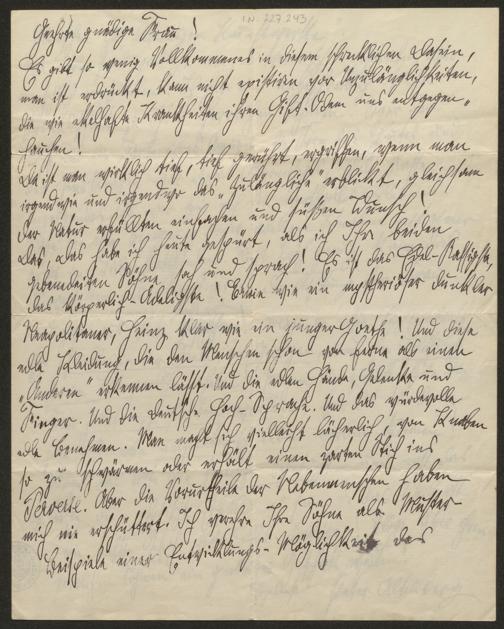 I.N. 227.243
Geehrte gnädige Frau!
Es gibt so wenig Vollkommenes in diesem schrecklichen Dasein,
man ist erdrückt, kann nicht existiren vor Unzulänglichkeiten,
die wie ekelhafte Krankheiten ihren Gift-Odem uns entgegen-
hauchen!
Da ist man wirklich tief, tief gerührt, ergriffen, wenn man
irgendwie und irgendwo das „Zulängliche" erblickt, gleichsam
der Natur erfüllten einfachen und süßen Wunsch!
Das, das habe ich heute gespürt, als ich Ihre beiden
gebenedeiten Söhne sah und sprach! Es ist das Edel-Rassigste,
das Körperlich-Adeligste! wie ein mysteriöser dunkler
Neapolitaner, Heinz klar wie ein junger Goethe! Und diese
edle Kleidung, die den Menschen schon von ferne als einen
„Anderen" erkennen lässt. Und die edlen Hände, Gelenke und
Finger. Und die deutsche Hoch-Sprache. Und das würdevolle
edle Benehmen. Man macht sich vielleicht lächerlich, von Knaben
so zu schwärmen oder erhält einen zarten Stich ins
Perverse. Aber die Vorurtheile der Nebenmenschen haben
mich nie erschüttert. Ich verehre Ihre Söhne als Muster-
Beispiele einer Entwicklungs-Möglichkeit das